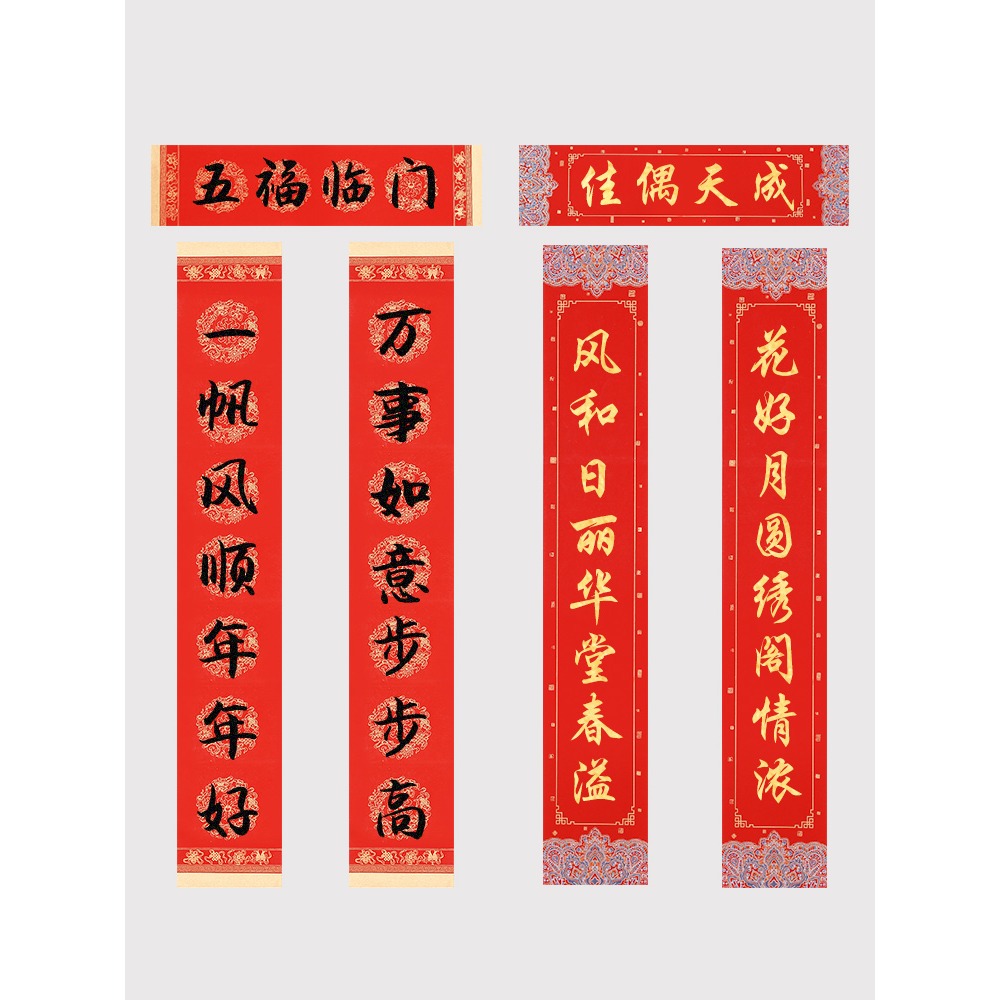 五福临门
一帆风顺年年好
万事如意步步高
佳偶天成
风和日丽华堂春溢
花好月圆绣阁情浓